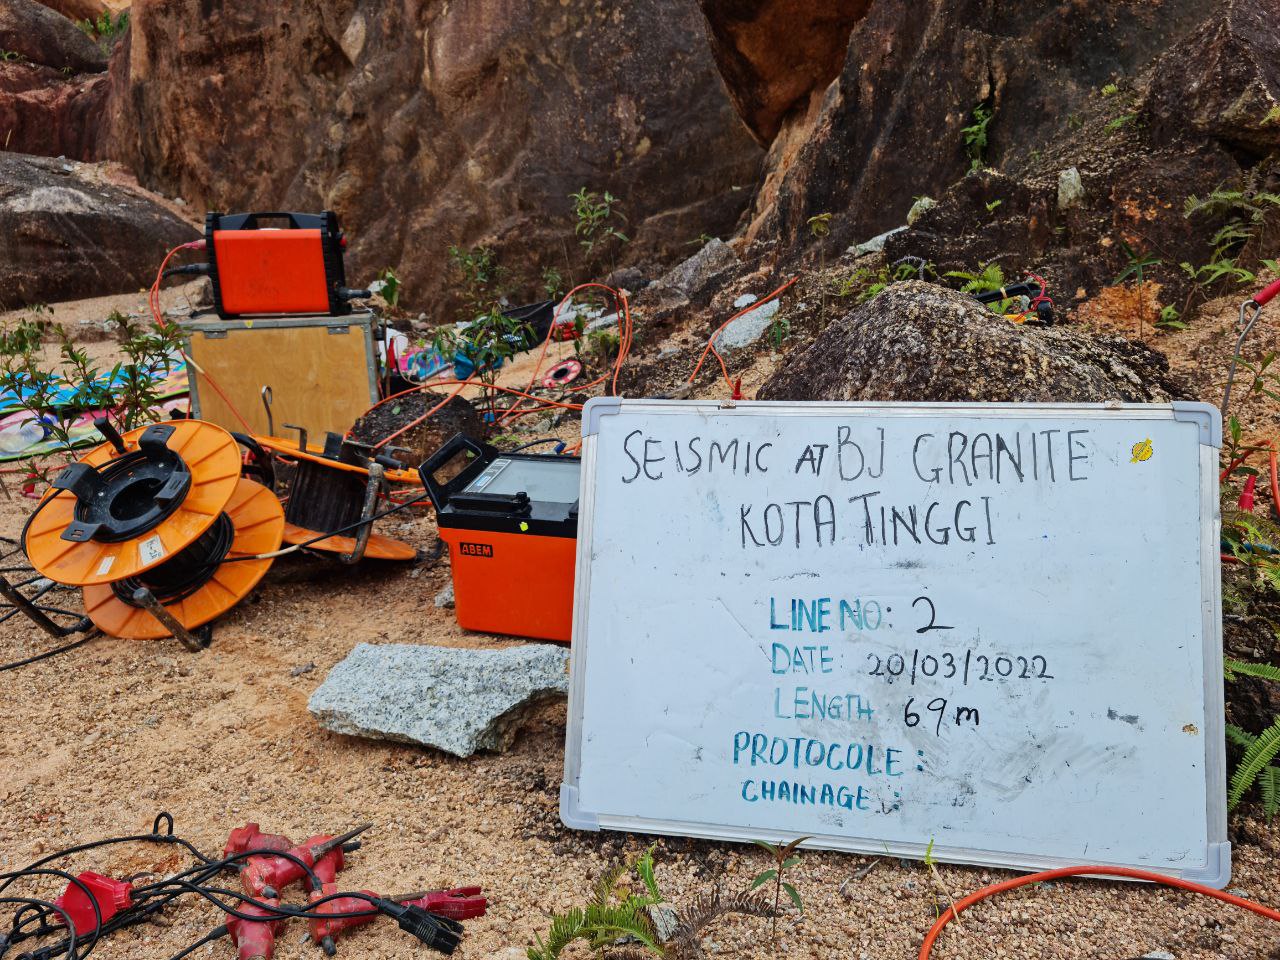 ABEM
SEISMIC AT BJ GRANITE
KOTA TINGGI
LINE NO: 2
DATE: 20/03/2022
LENGTH 69m
PROTOCOLE:
CHAINAGE: